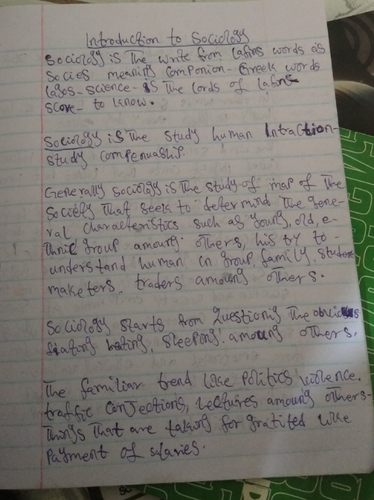 Introduction to Sociology
Sociology is the write from Latins words as
Socies meaning Companion - Greek words
Logos - science - is the Lords of Latins
score - to know.
Sociology is the study human Intraction -
study companuaship
Generally sociology is the study of map of the
Society that seeks to determind the gene-
ral characteristics such as young, old, e-
thnic group amoung others, his try to -
understand human in group, family, student
maketers, traders amoung others.
Sociology starts from questioning the
eating, sleeping, amoung others.
The familiar trend like politics violence,
traffic conjections, lectures amoung others -
things that are taking for gratited like
Payment of slaries.